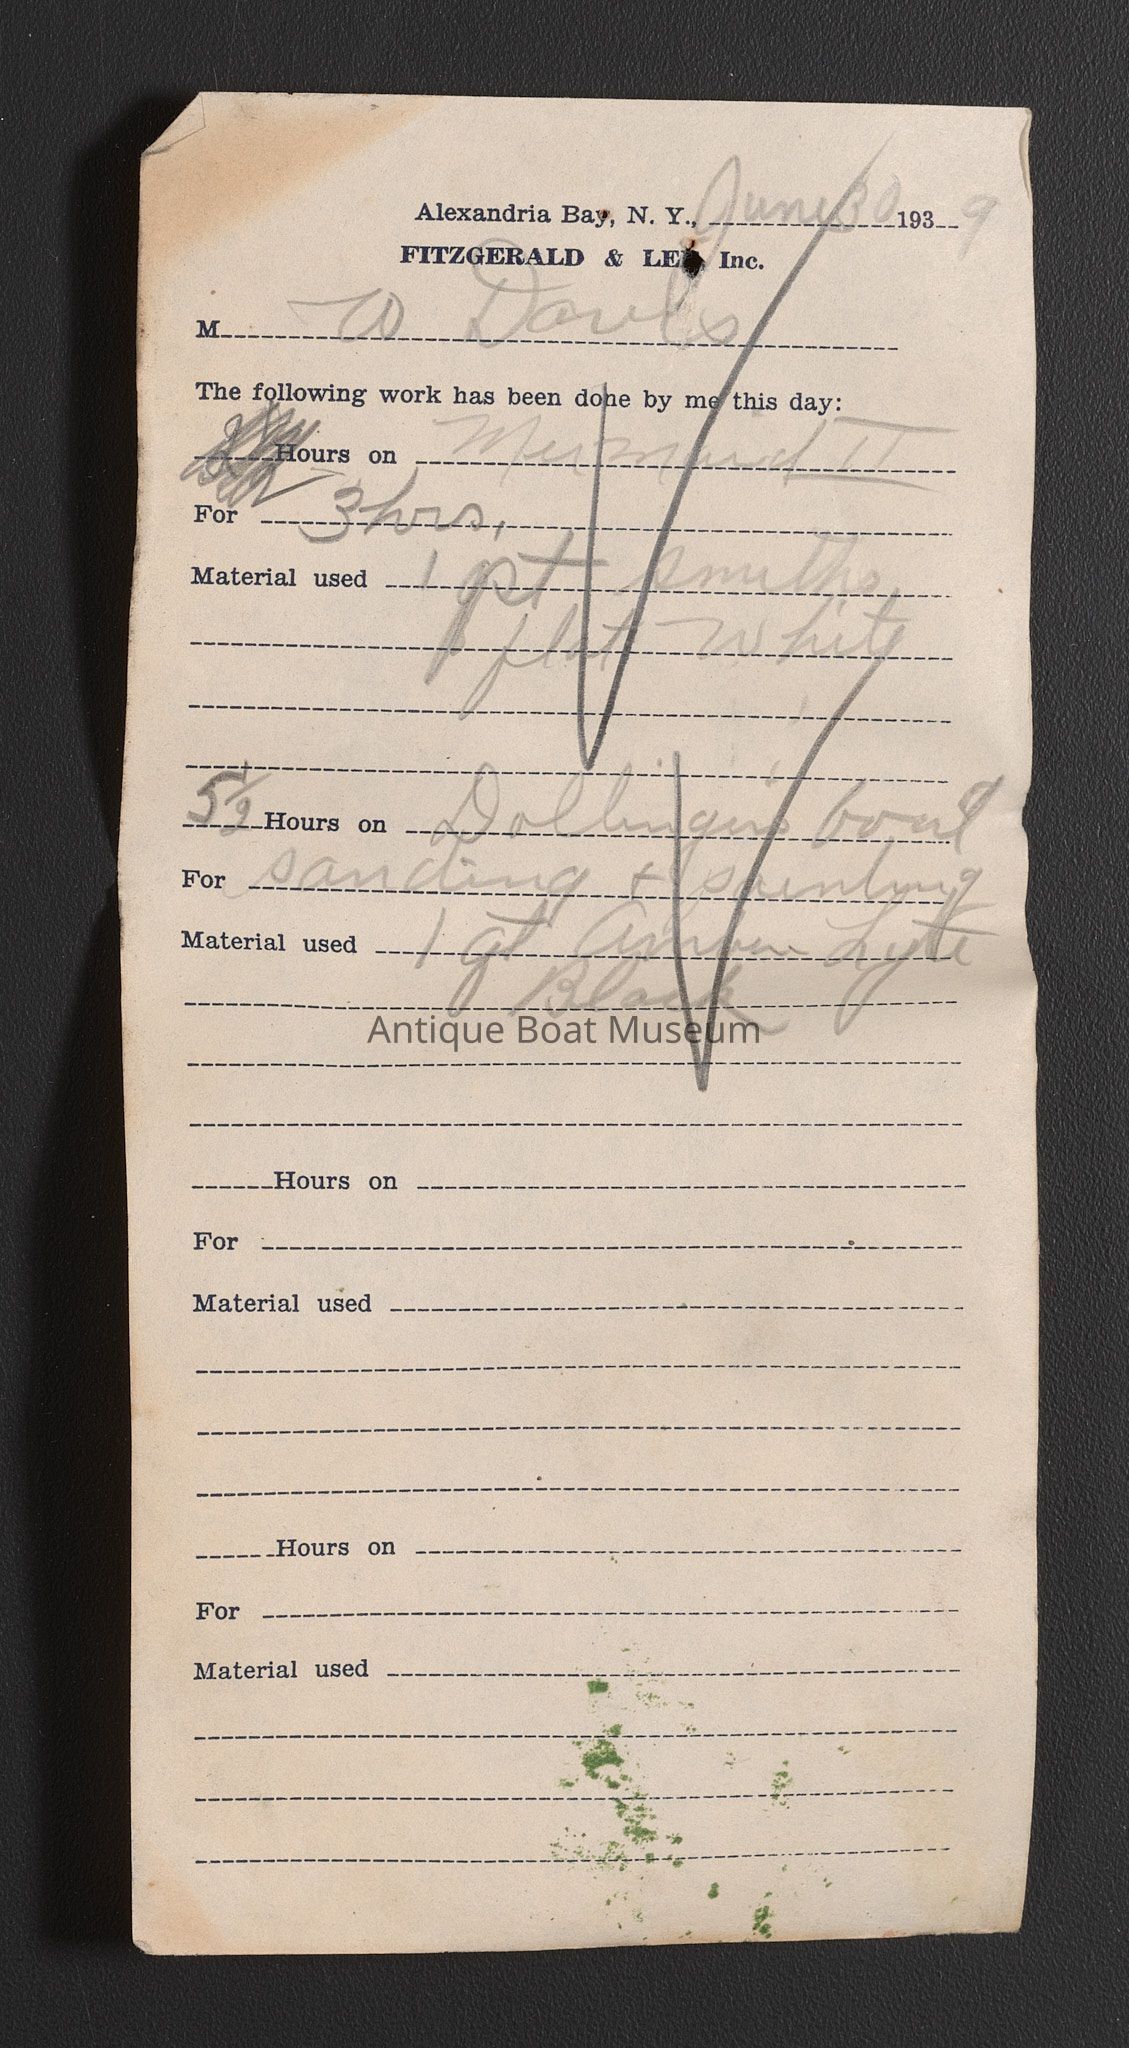 Alexandria Bay, N. Y., June 30 1939
FITZGERALD & LEE, Inc.
M W Davis
The following work has been done by me this day:
Hours on Mermaid II
For 3 hrs.
Material used 1 pt smiths
flat white
5 1/2 Hours on Dollinger's boat
For sanding + painting
Material used 1 qt Lyte
Black
Antique Boat Museum
Hours on
For
Material used
Hours on
For
Material used